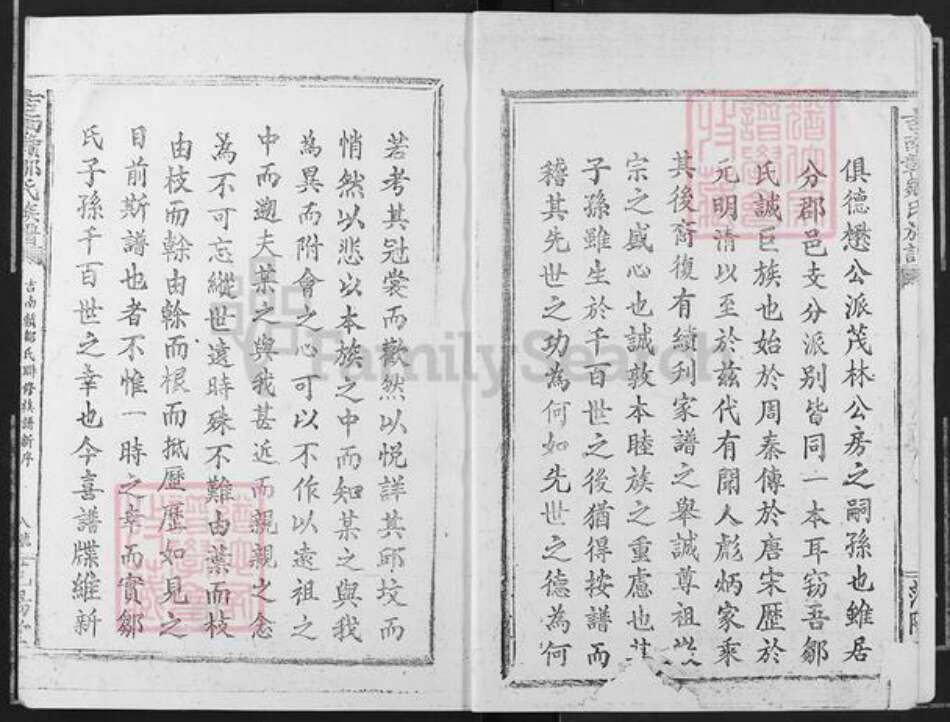 俱德懋公派茂林公房之嗣孫也雖居
分郡邑支分派別皆同一本耳窃吾鄒
氏誠巨族也始於周秦傳於唐宋歷於
元明清以至於茲代有聞人彪炳家乘
其後裔復有續刋家譜之舉誠尊祖
宗之盛心也誠敦本睦族之重慮也
子孫雖生於千百世之後猶得按譜而
稽其先世之功為何如先世之德為何
若考其冠裳而歡然以悅詳其邱坟而
悄然以悲以本族之中而知某之與我
為異而附會之心可以不作以遠祖之
中而遡夫某之與我甚近而親親之念
為不可忘縱世遠時殊不難由葉而枝
由枝而榦由榦而根而柢歷歷如見之
目前斯譜也者不惟一時之幸而實鄒
氏子孫千百世之幸也今喜譜牒維新
吉南贛鄒氏族譜
吉南贛鄒氏聯修族譜新序
范陽
FamilySearch